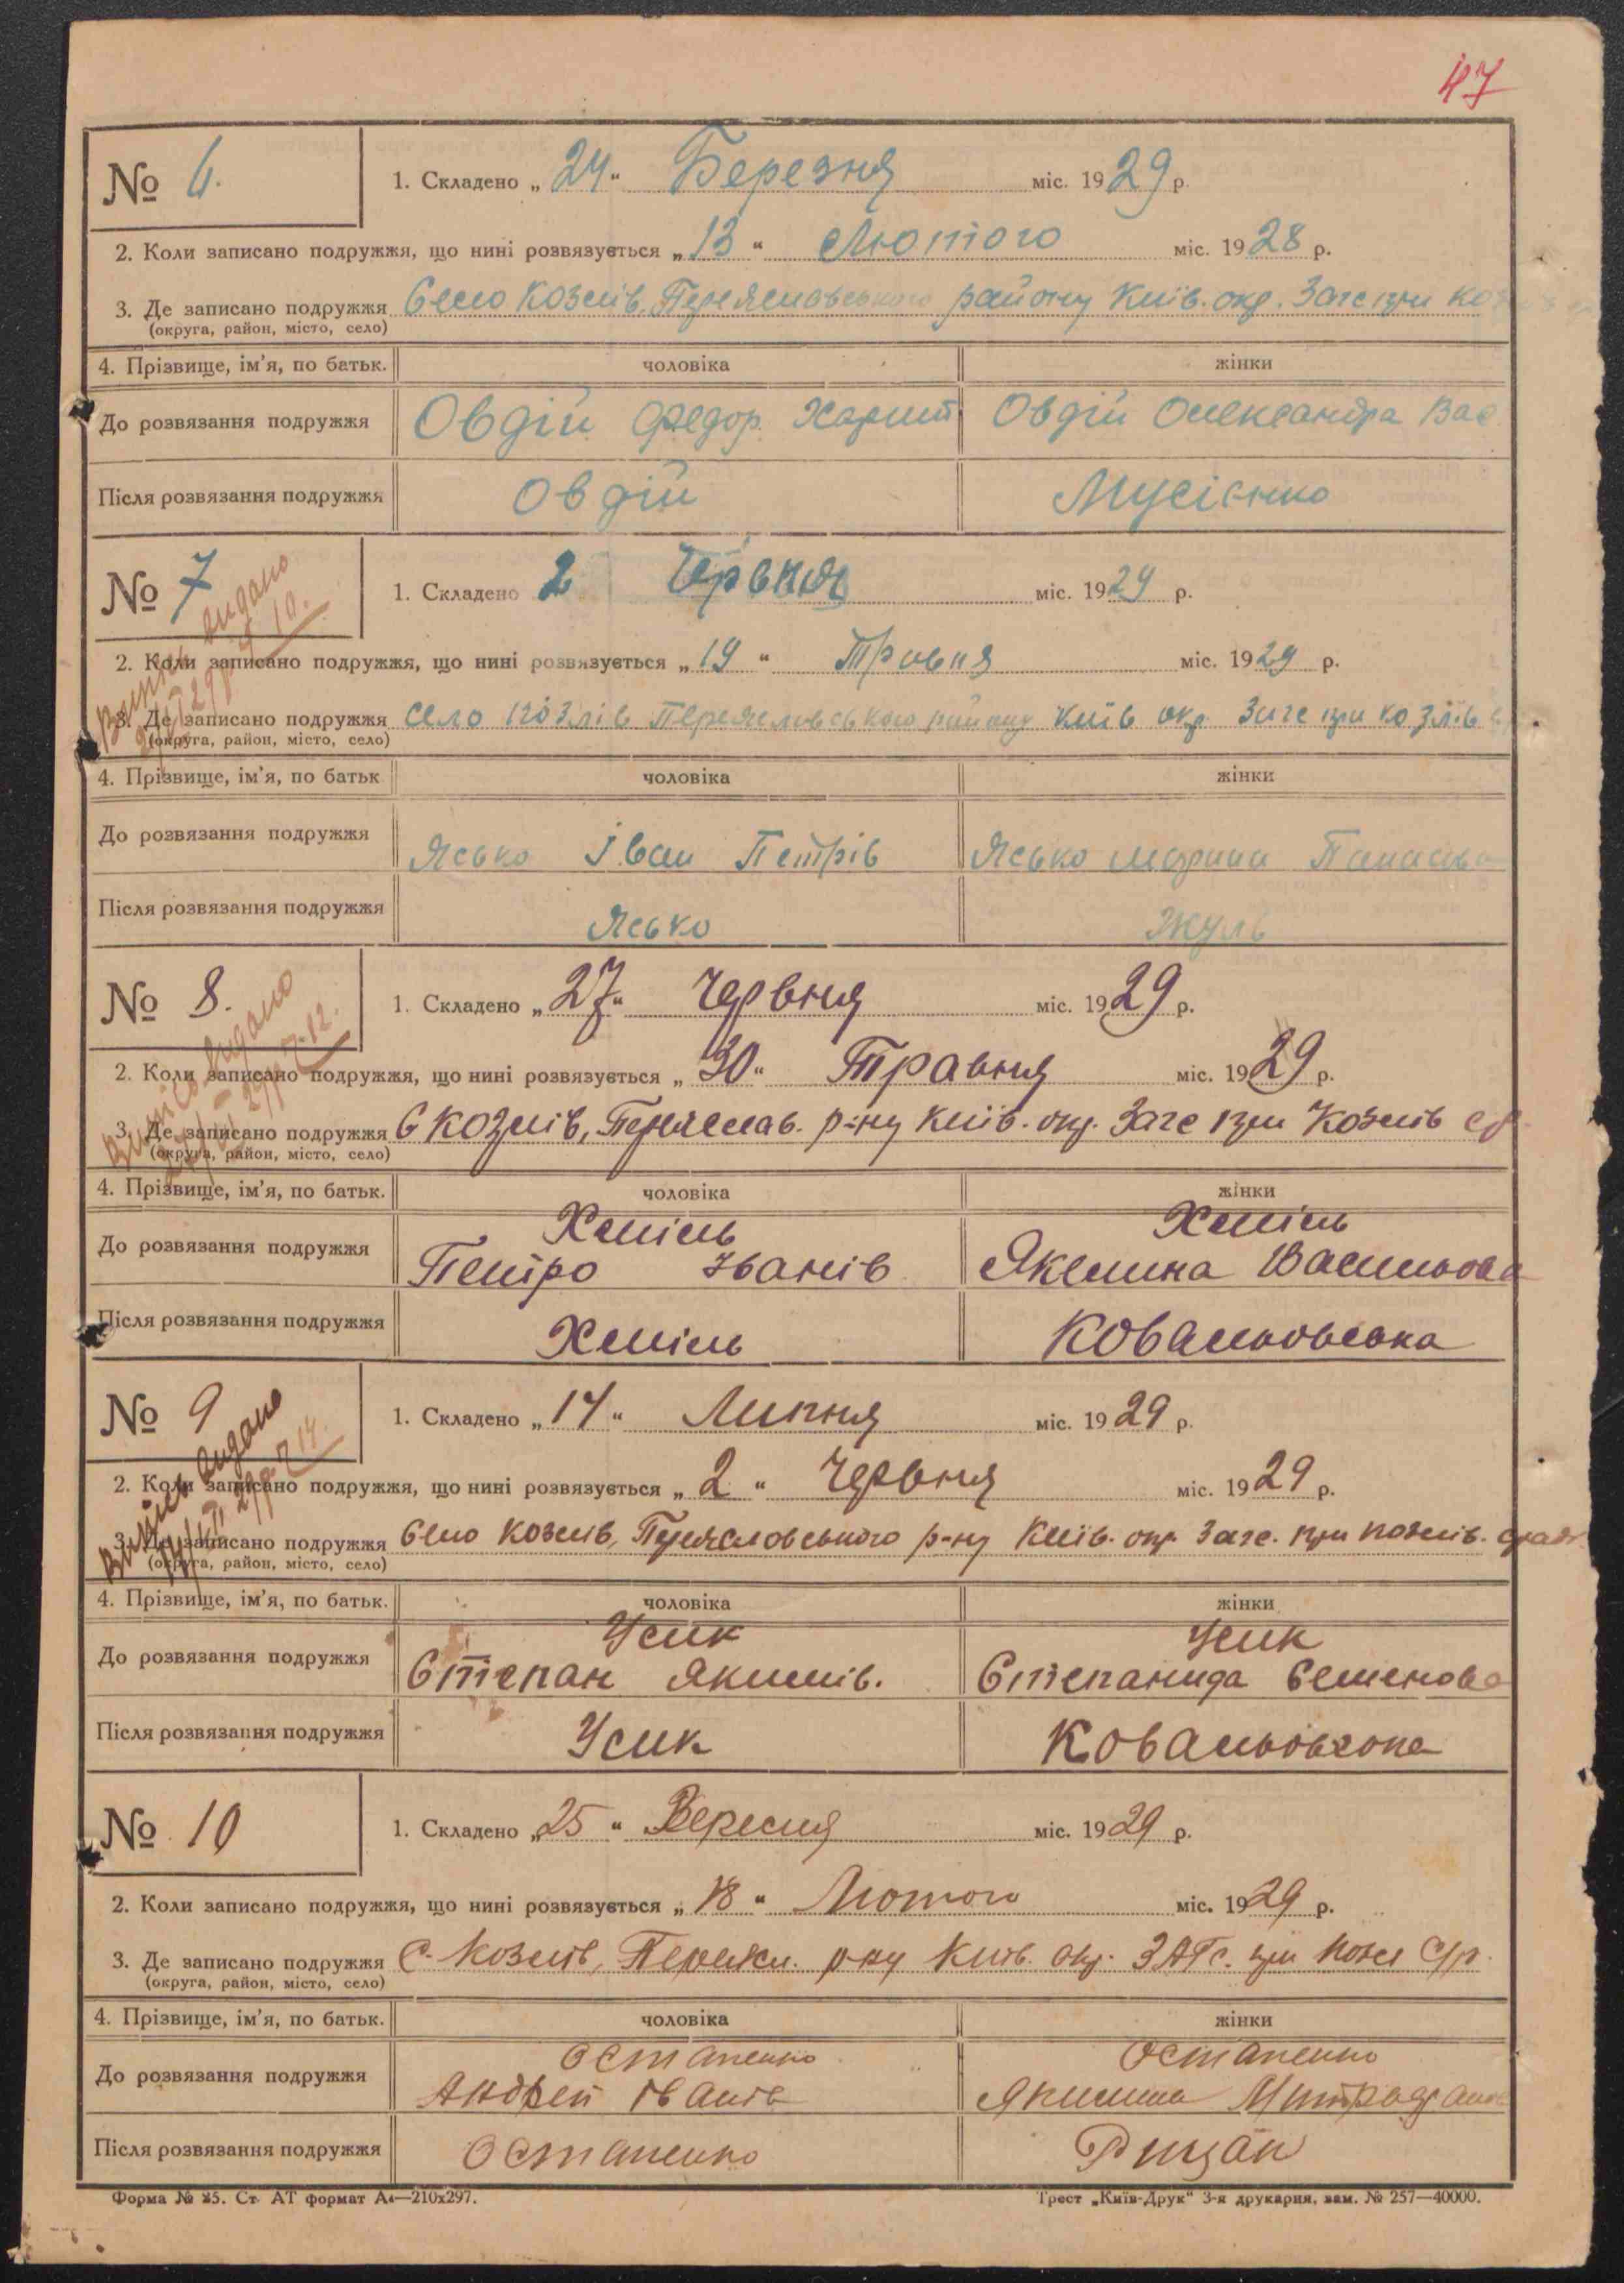 47
№ 6.
1. Складено „24“ Березня міс. 1929 р.
2. Коли записано подружжя, що нині розвязується „13“ Лютого міс. 1928 р.
3. Де записано подружжя Село Козлів, Переяславського району Київ. окр. Загс при
(округа, район, місто, село)
4. Прізвище, ім'я, по батьк. чоловіка жінки
До розвязання подружжя Овдій Федор. Харит Овдій Олександра Вас
Після розвязання подружжя Овдій Мусієнко
№ 7
1. Складено 2 Червня міс. 1929 р.
2. Коли записано подружжя, що нині розвязується „19“ Травня міс. 1929 р.
3. Де записано подружжя село Козлів Переяславського району Київ окр. Загс при козлів
(округа, район, місто, село)
Випись видано
4. Прізвище, ім'я, по батьк чоловіка жінки
До розвязання подружжя Ясько Іван Петрів Ясько Марина Панасова
Після розвязання подружжя Ясько Жуль
№ 8.
1. Складено „27“ Червня міс. 1929 р.
2. Коли записано подружжя, що нині розвязується „30“ Травня міс. 1929 р.
3. Де записано подружжя С Козлів, Переяслав. р-ну Київ. окр. Загс при Козлів ср.
(округа, район, місто, село)
Випись видано
4. Прізвище, ім'я, по батьк. чоловіка жінки
Хміль Хміль
До розвязання подружжя Петро Іванів Якилина Васильова
Після розвязання подружжя Хміль Ковальовська
№ 9
1. Складено „14“ Липня міс. 1929 р.
2. Коли записано подружжя, що нині розвязується „2“ Червня міс. 1929 р.
3. Де записано подружжя Село Козлів, Переясловського р-ну Київ. окр. Загс. при козлів.
(округа, район, місто, село)
Випись видано
4. Прізвище, ім'я, по батьк. чоловіка жінки
Усик Усик
До розвязання подружжя Степан Якимів. Степанида Семенова
Після розвязання подружжя Усик Ковальовська
№ 10
1. Складено „25“ Вересня міс. 1929 р.
2. Коли записано подружжя, що нині розвязується „18“ Лютого міс. 1929 р.
3. Де записано подружжя С. Козлів, Переясл. р-ну Київ. окр. ЗАГС. при Козл С/р.
(округа, район, місто, село)
4. Прізвище, ім'я, по батьк. чоловіка жінки
Остапенко Остапенко
До розвязання подружжя Андрей Іванів Якилина
Після розвязання подружжя Остапенко
Форма № 25. Ст. АТ формат А4—210x297. Трест „Київ-Друк“ 3-я друкарня, зам. № 257—40000.